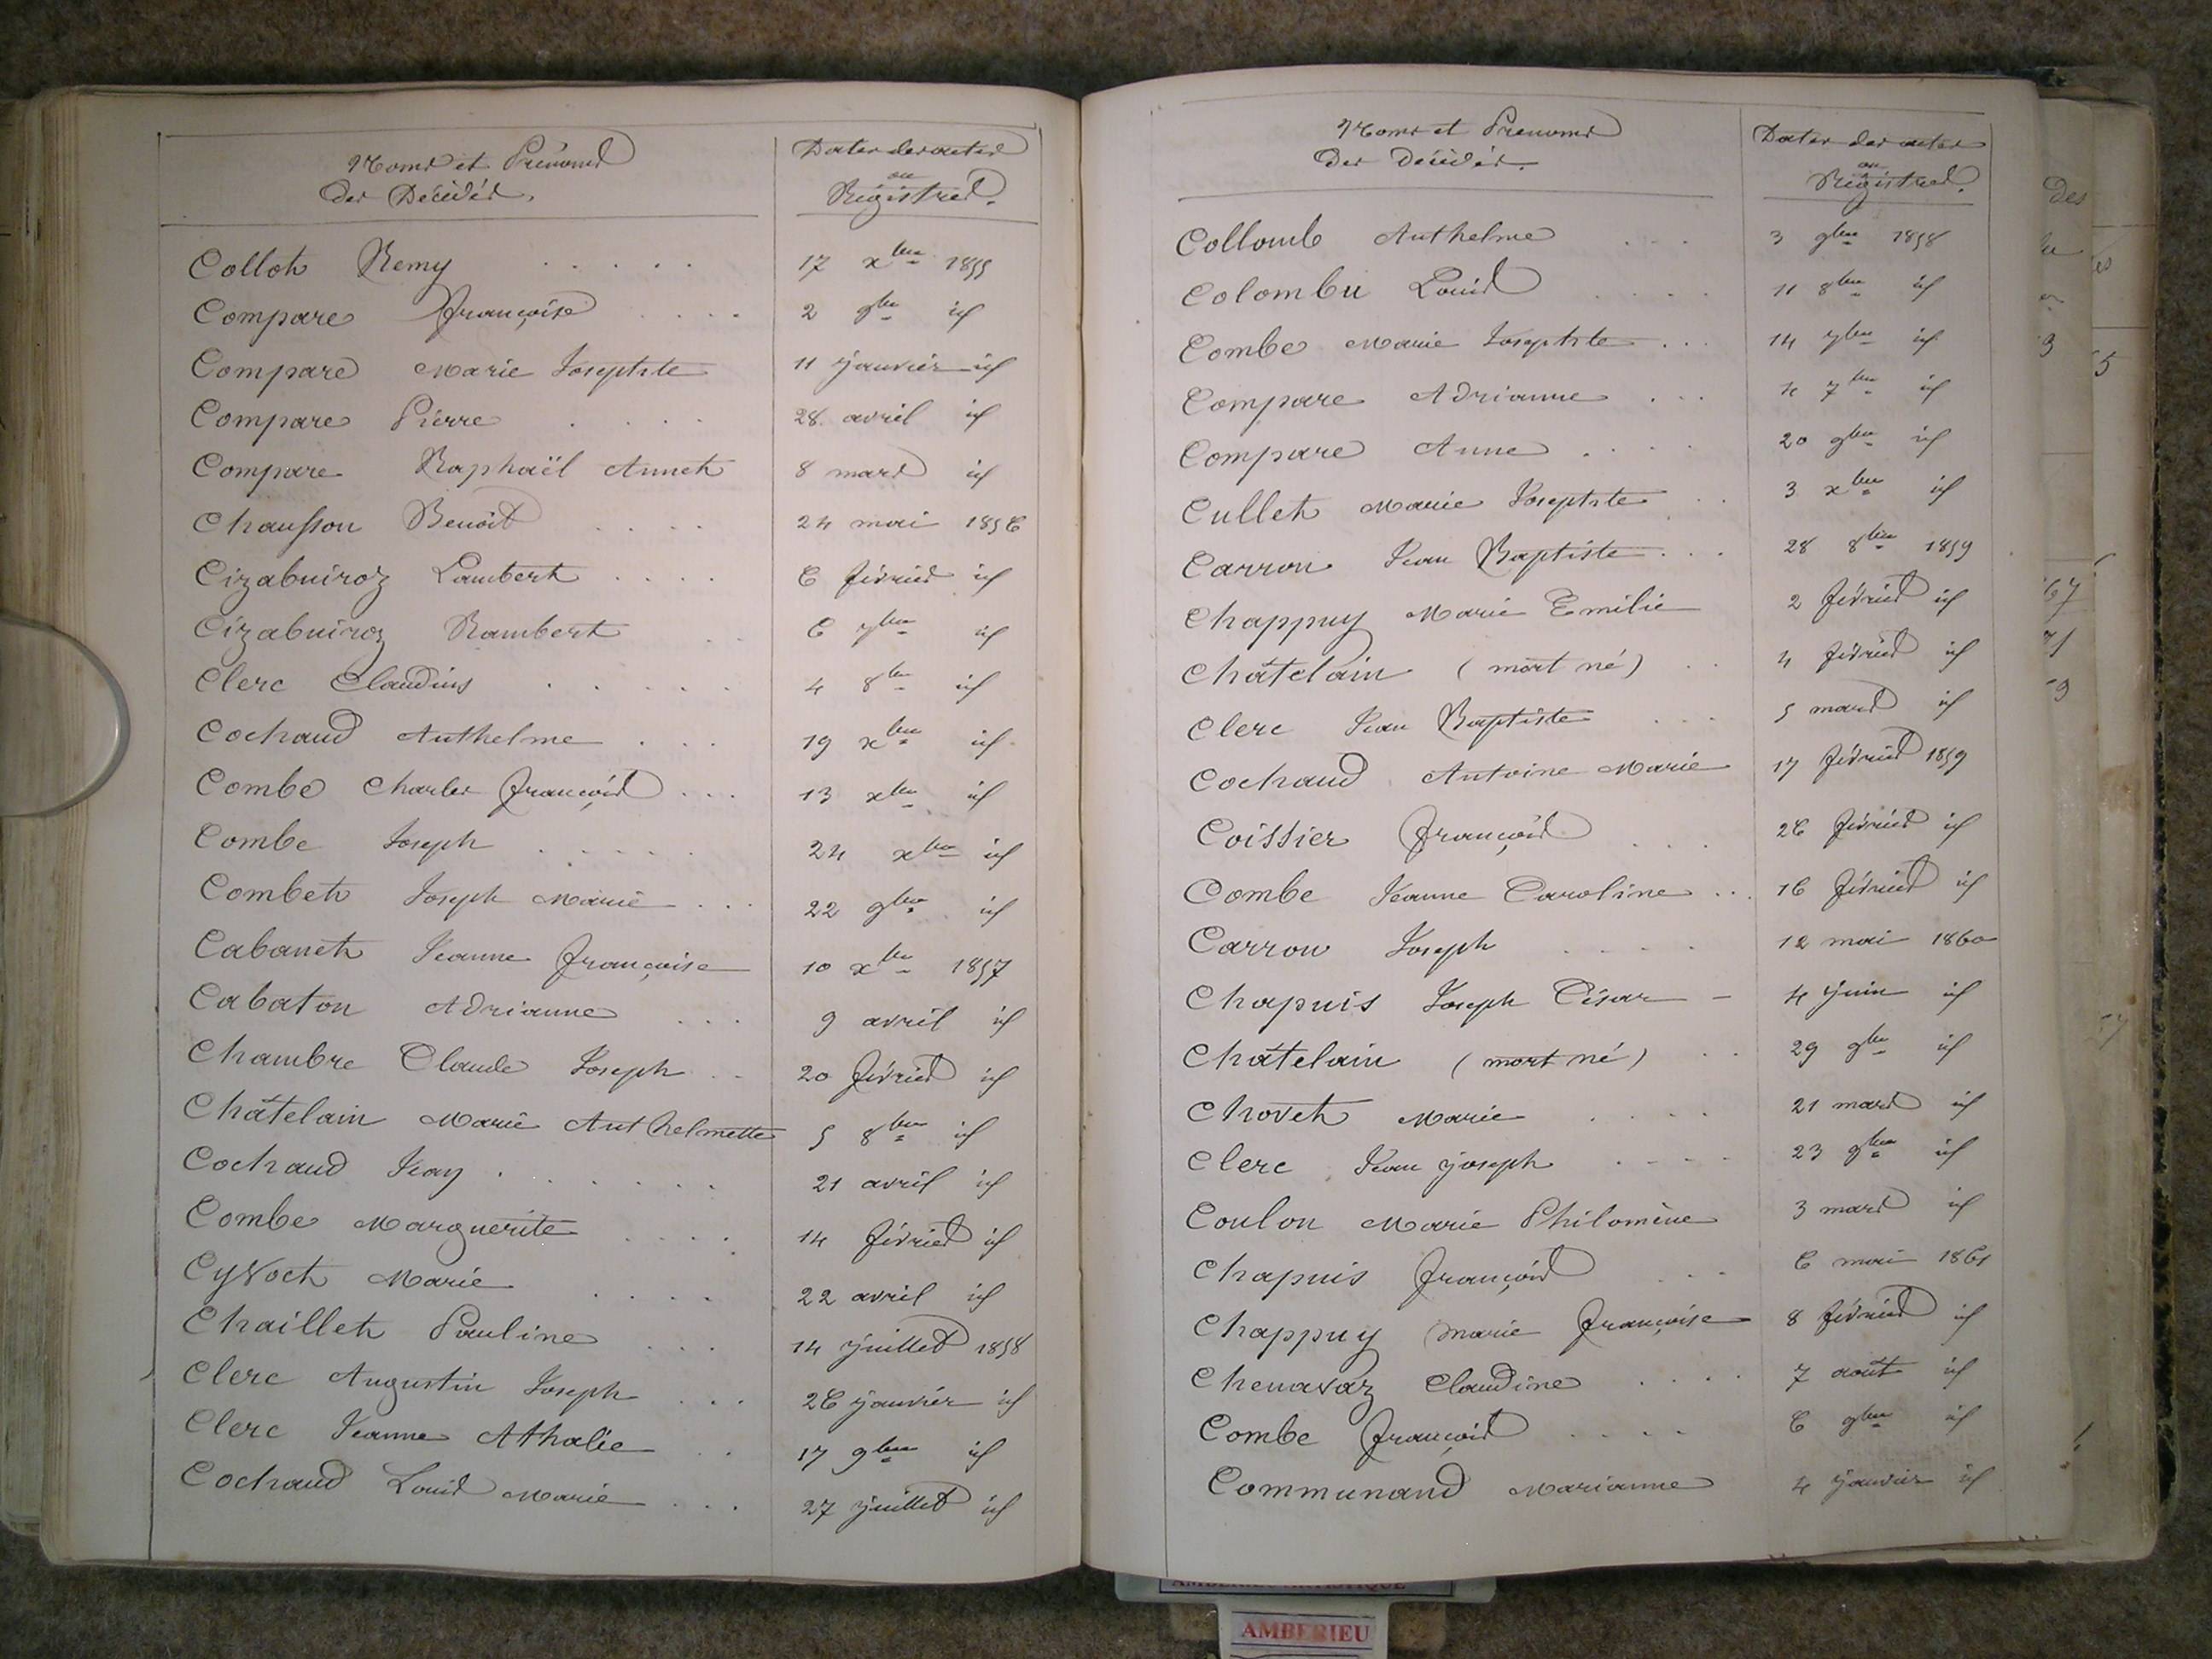 Noms et Prénoms
Des Décédés.
Dates des actes
ou
Régistres.
Collot Remy . . . . . 17 xbre 1855
Compare Françoise . . . . 2 9bre id
Compare Marie Josephte 11 janvier id
Compare Pierre . . . . 28 avril id
Compare Raphaël Annet 8 mars id
Chausson Benoit . . . . 24 mai 1856
Cizabuiroz Lambert . . . . 6 février id
Cizabuiroz Rambert . . 6 7bre id
Clerc Claudius . . . . . 4 8bre id
Cochaud Anthelme . . . 19 xbre id
Combe Charles François . . . 13 xbre id
Combe Joseph . . . . . 24 xbre id
Combet Joseph Marie . . . 22 9bre id
Cabanet Jeanne Françoise 10 xbre 1857
Cabaton Adrianne . . . 9 avril id
Chambre Claude Joseph . . 20 février id
Châtelain Marie Anthelmette 5 8bre id
Cochaud Jean . . . . . . 21 avril id
Combe Marguerite . . . . 14 février id
Cyvoct Marie . . . . 22 avril id
Chaillet Pauline . . . 14 juillet 1858
Clerc Augustin Joseph . . . 26 janvier id
Clerc Jeanne Athalie . . 17 9bre id
Cochaud Louis Marie . . . 27 juillet id
Noms et Prénoms
Des Décédés.
Dates des actes
ou
Régistres.
Collomb Anthelme . . . 3 9bre 1858
Colombu Louis . . . . 11 8bre id
Combe Marie Josephte . . . 14 7bre id
Compare Adrianne . . . 4 7bre id
Compare Anne . . . . 20 9bre id
Cullet Marie Josephte . . 3 xbre id
Carron Jean Baptiste . . . 28 8bre 1859
Chappuy Marie Emilie 2 février id
Châtelain (mort né) . . 4 février id
Clerc Jean Baptiste . . . 5 mars id
Cochaud Antoine Marie 17 février 1859
Coissier François . . . 26 février id
Combe Jeanne Caroline . . . 16 février id
Carron Joseph . . . . 12 mai 1860
Chapuis Joseph César - 4 juin id
Châtelain (mort né) . . 29 9bre id
Chovet Marie . . . . 21 mars id
Clerc Jean joseph . . . . 23 9bre id
Coulon Marie Philomène 3 mars id
Chapuis François . . . 6 mai 1861
Chappuy marie Françoise 8 février id
Chenavaz Claudine . . . . 7 août id
Combe François . . . . 6 9bre id
Communand Marianne 4 janvier id
AMBERIEU